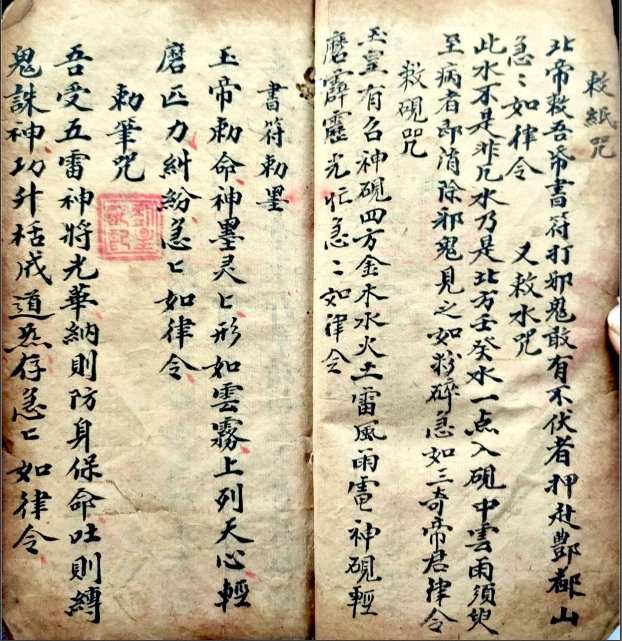 敕紙咒
北帝敕吾帋書符打邪鬼敢有不伏者押赴酆都山
急〻如律令 又敕水咒
此水不是非凡水乃是北方壬癸水一点入硯中雲雨須臾
至病者即消除邪鬼見之如粉碎急如三奇帝君律令
敕硯咒
玉皇有召神硯四方金木水火土雷風雨電神硯輕
磨霹靂光忙急〻如律令
書符勅墨
玉帝勅命神墨灵匕形如雲霧上列天心輕
磨匹力糾紛急匕如律令
勅筆咒
吾受五雷神將光華納則防身保命吐則縛
鬼誅神功升栝成道炁存急匕如律令